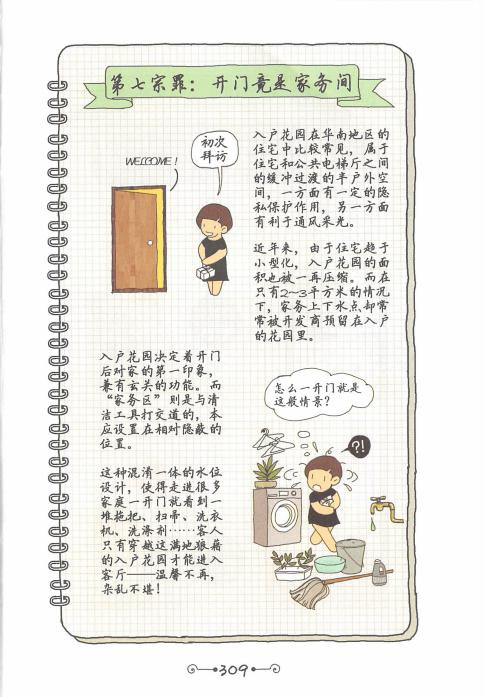 第七宗罪：开门竟是家务间
WELCOME！
初次
拜访
入户花园在华南地区的
住宅中比较常见，属于
住宅和公共电梯厅之间
的缓冲过渡的半户外空
间，一方面有一定的隐
私保护作用，另一方面
有利于通风采光。
近年来，由于住宅趋于
小型化，入户花园的面
积也被一再压缩。而在
只有2~3平方米的情况
下，家务上下水点却常
常被开发商预留在入户
的花园里。
入户花园决定着开门
后对家的第一印象，
兼有玄关的功能。而
“家务区”则是与清
洁工具打交道的，本
应设置在相对隐蔽的
位置。
怎么一开门就是
这般情景？
?!
这种混淆一体的水位
设计，使得走进很多
家庭一开门就看到一
堆拖把、扫帚、洗衣
机、洗涤剂……客人
只有穿越这满地狼藉
的入户花园才能进入
客厅——温馨不再，
杂乱不堪！
309